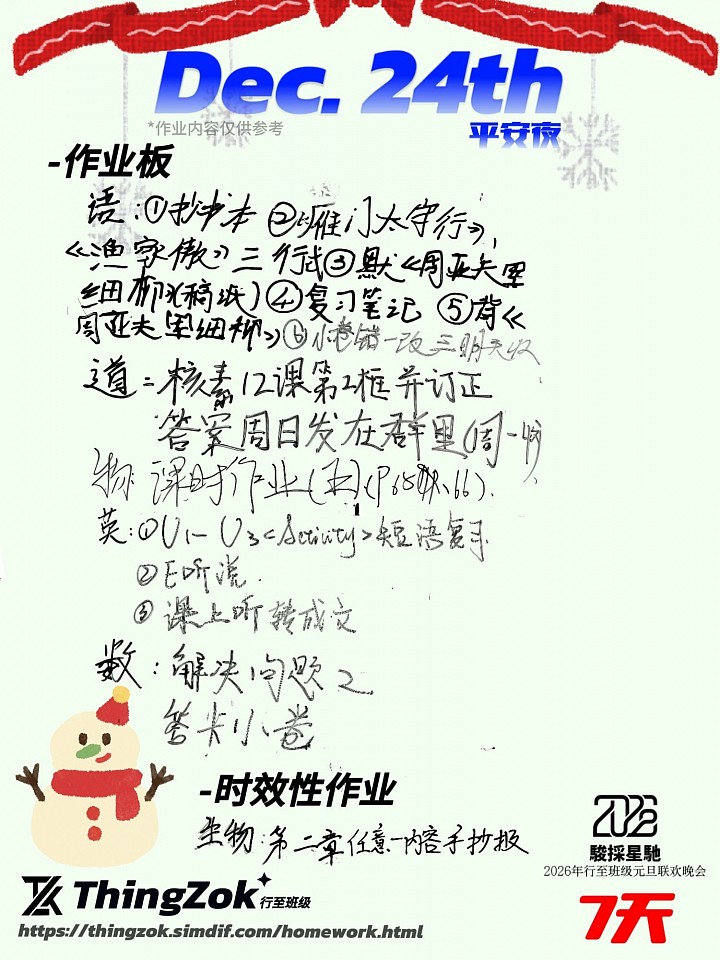 Dec. 24th
*作业内容仅供参考
平安夜
-作业板
语:①抄书本 ②《雁门太守行》,
《渔家傲》三行试③默《周亚夫军
细柳》(稿纸)④复习笔记 ⑤背《
周亚夫军细柳》⑥小卷错一改三明天收
道: 核素12课第2框并订正
答案周日发在群里(周一收)
物: 课时作业(五)(P65、66).
英:①U1-U3<Activity>短语复习
②E听说.
③课上听转成文
数:解决问题2
答卡小卷
-时效性作业
生物:第二章任意一内容手抄报
2026
駿採星馳
2026年行至班级元旦联欢晚会
7天
ThingZok 行至班级
https://thingzok.simdif.com/homework.html